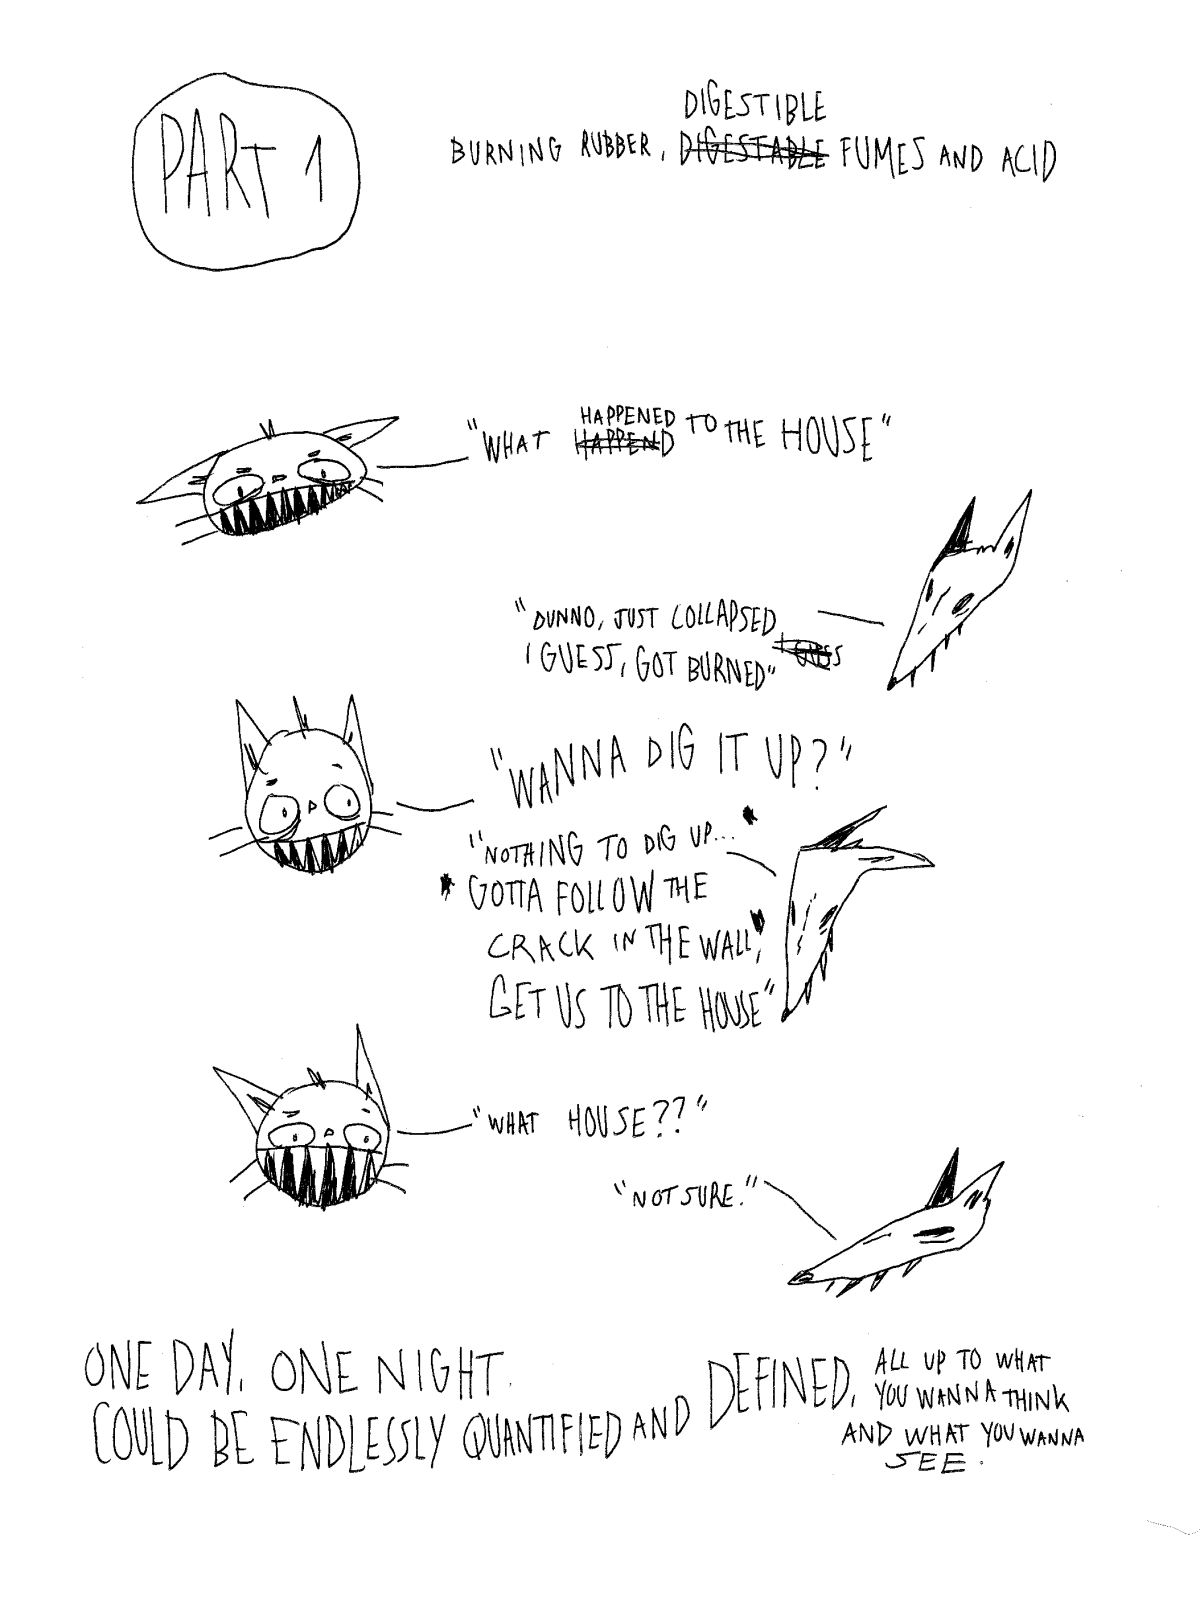 PART 1
DIGESTIBLE
BURNING RUBBER, DIGESTABLE FUMES AND ACID
HAPPENED
"WHAT HAPPEND TO THE HOUSE"
"DUNNO, JUST COLLAPSED
I GUESS, GOT BURNED"
"WANNA DIG IT UP?"
"NOTHING TO DIG UP...
GOTTA FOLLOW THE
CRACK IN THE WALL,
GET US TO THE HOUSE"
"WHAT HOUSE??"
"NOT SURE."
ONE DAY, ONE NIGHT.
COULD BE ENDLESSLY QUANTIFIED AND DEFINED,
ALL UP TO WHAT
YOU WANNA THINK
AND WHAT YOU WANNA
SEE.